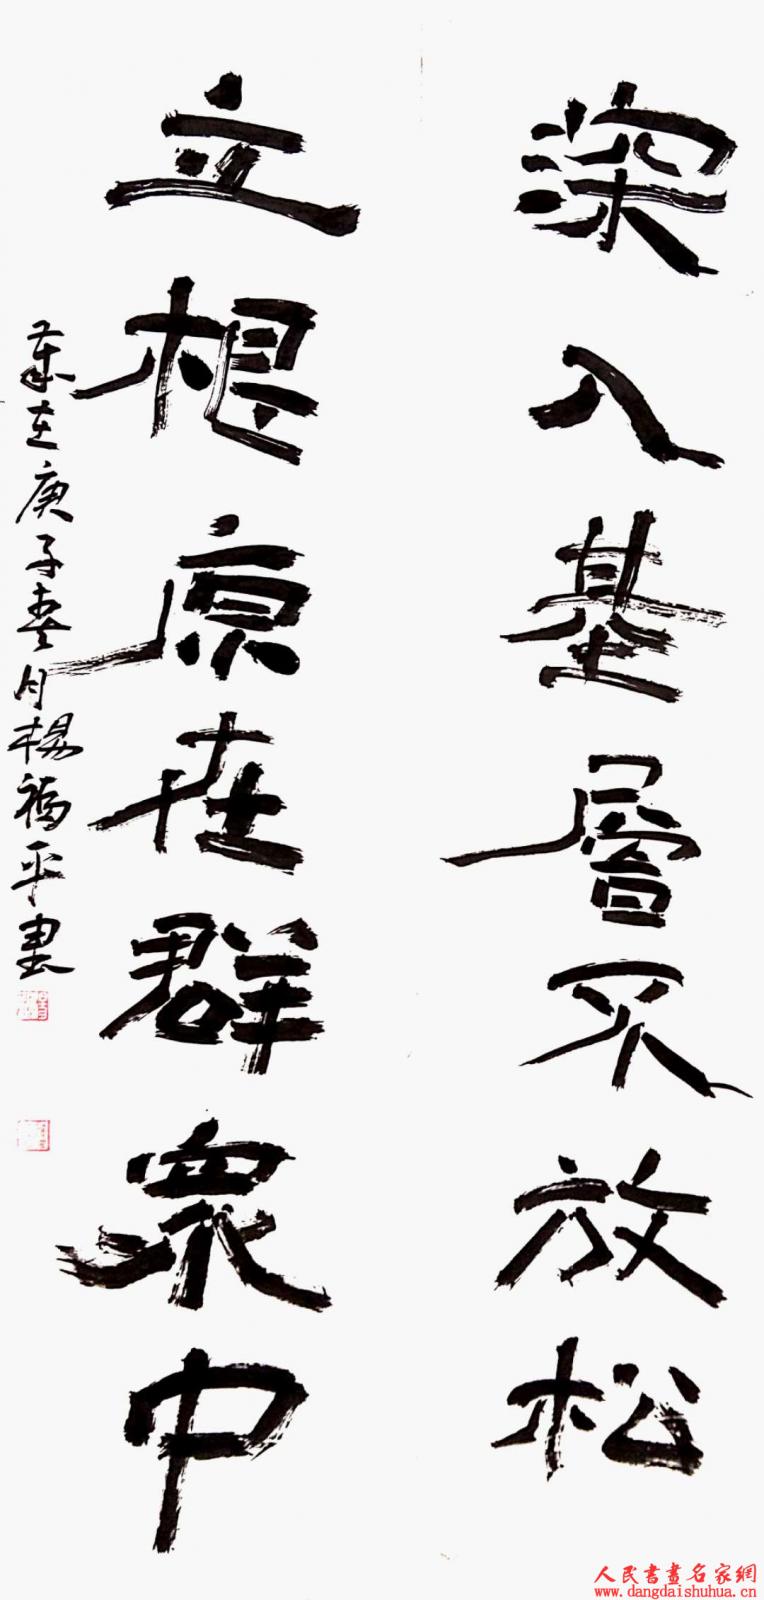 深入基層不放松
立根原在群眾中
歲在庚子春月楊福平書
人民書畫名家網
www.dangdaishuhua.cn